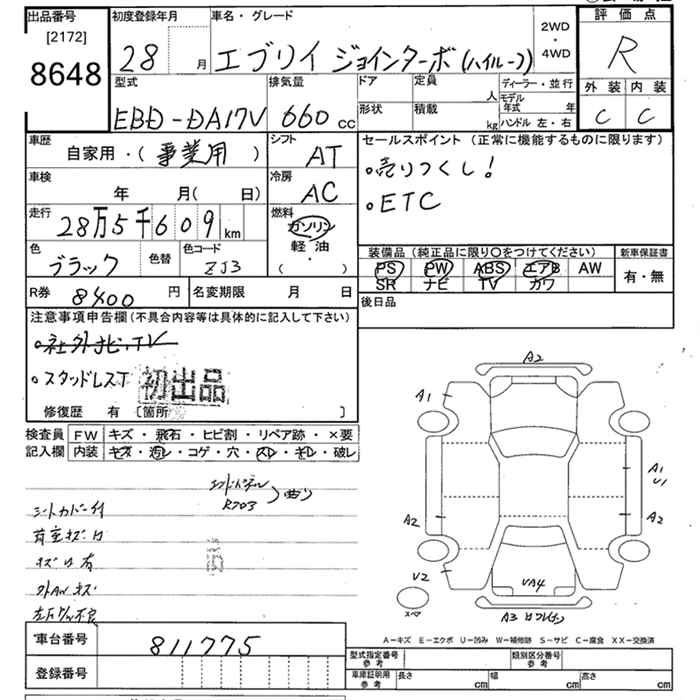 出品番号
[2172]
8648
初度登録年月
28 月
車名・グレード
エブリイ ジョインターボ(ハイルーフ)
2WD
・
4WD
評価点
R
外装 内装
C C
型式
EBD-DA17V
排気量
660 cc
ドア
形状
定員
人
積載
kg
ディーラー・並行
モデル年式 年
ハンドル 左・右
車歴
自家用・(事業用)
シフト
AT
セールスポイント (正常に機能するものに限ります)
・売りつくし!
・ETC
車検
年 月(日)
冷房
AC
走行
28万5千609km
燃料
ガソリン
軽油
・
( )
色
ブラック
色替
色コード
ZJ3
装備品(純正品に限り〇をつけてください)
PS PW ABS エアB AW
SR ナビ TV カワ
新車保証書
有・無
R券 8400円
名変期限 月 日
後日品
注意事項申告欄(不具合内容等は具体的に記入して下さい)
・社外ナビ・TV
・スタッドレスT
初出品
修復歴 有 〔箇所 〕
検査員
記入欄
FW キズ・飛石・ヒビ割・リペア跡・×要
内装 キズ・汚レ・コゲ・穴・スレ・キレ・破レ
シートカバー付
荷室キズ凹
キズ凹有
外AWキズ
A2
A1
A1
U1
A2
A2
U2
UA4
スペア
A3
A-キズ E-エクボ U-凹み W-補修跡 S-サビ C-腐食 XX-交換済
車台番号
811775
登録番号
型式指定番号
参考
類別区分番号
参考
車庫証明用
参考
長さ cm
幅 cm
高さ cm